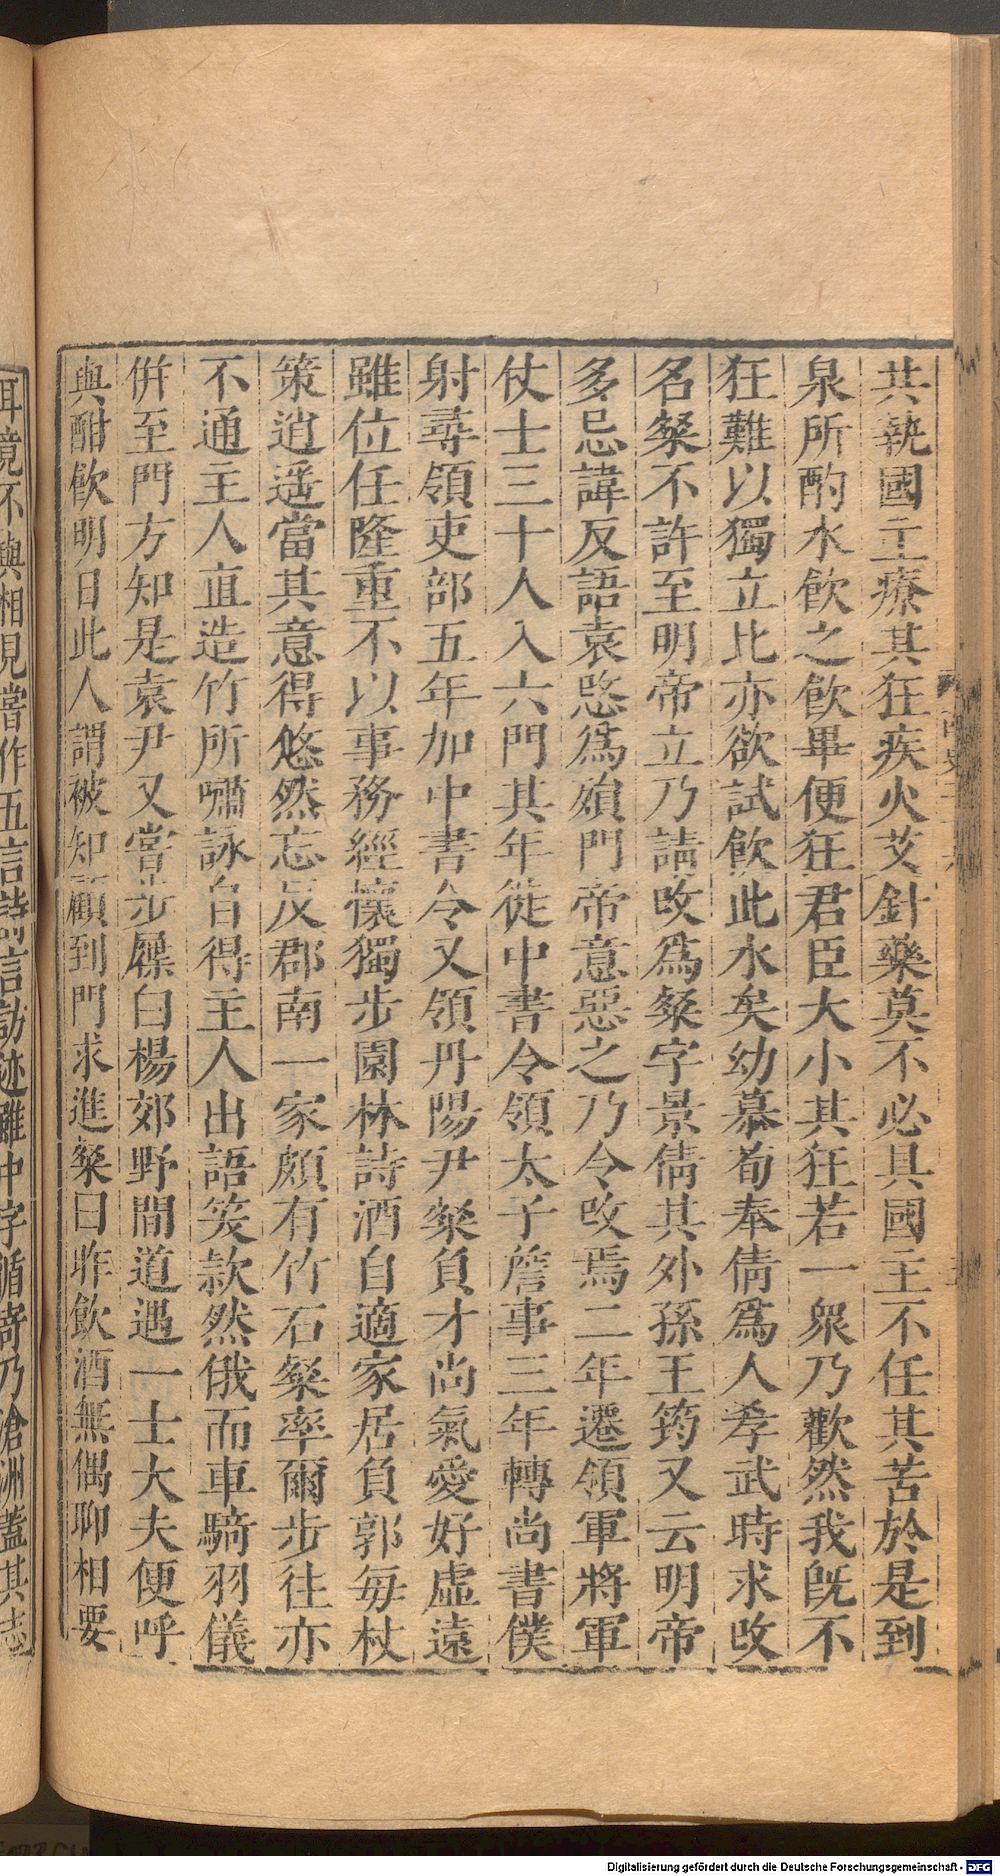 共執國主療其狂疾火艾針藥莫不必具國主不任其苦於是到
泉所酌水飲之飲畢便狂君臣大小其狂若一衆乃歡然我旣不
狂難以獨立比亦欲試飲此水矣幼慕荀奉倩爲人孝武時求改
名粲不許至明帝立乃請改爲粲字景倩其外孫王筠又云明帝
多忌諱反語袁愍爲殞門帝意惡之乃令改焉二年遷領軍將軍
仗士三十人入六門其年徙中書令領太子詹事三年轉尚書僕
射尋領吏部五年加中書令又領丹陽尹粲負才尚氣愛好虛遠
雖位任隆重不以事務經懷獨步園林詩酒自適家居負郭每杖
策逍遥當其意得悠然忘反郡南一家頗有竹石粲率爾步往亦
不通主人直造竹所嘯詠自得主人出語笑款然俄而車騎羽儀
併至門方知是袁尹又嘗步屧白楊郊野間道遇一士大夫便呼
與酣飲明日此人謂被知顧到門求進粲曰昨飲酒無偶聊相要
耳竟不與相見嘗作五言詩言訪迹雖中宇循寄乃滄洲蓋其志
Digitalisierung gefördert durch die Deutsche Forschungsgemeinschaft - DFG